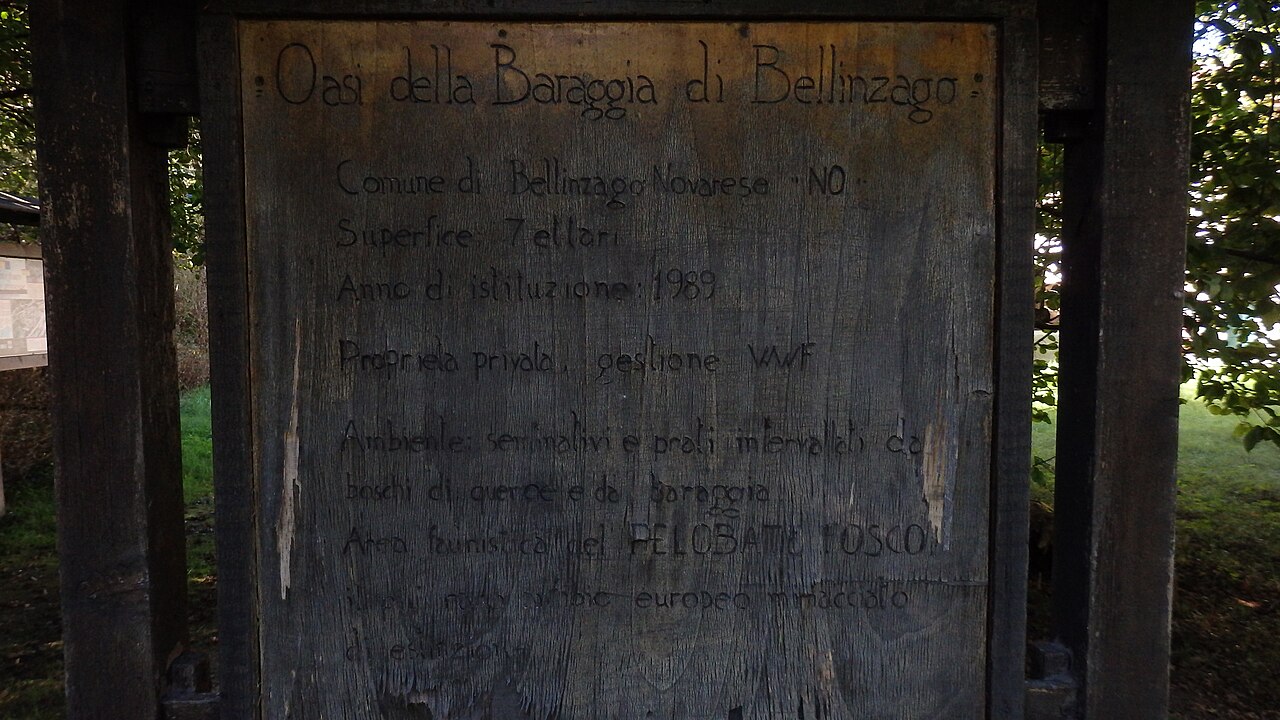 Oasi della Baraggia di Bellinzago
Comune di Bellinzago Novarese NO
Superfice 7 ettari
Anno di istituzione: 1989
Proprieta privata, gestione WWF
Ambiente: seminativi e prati intervallati da
boschi di querce e da baraggia
Area faunistica del PELOBATE FOSCO
il più raro anfibio europeo minacciato
di estinzione